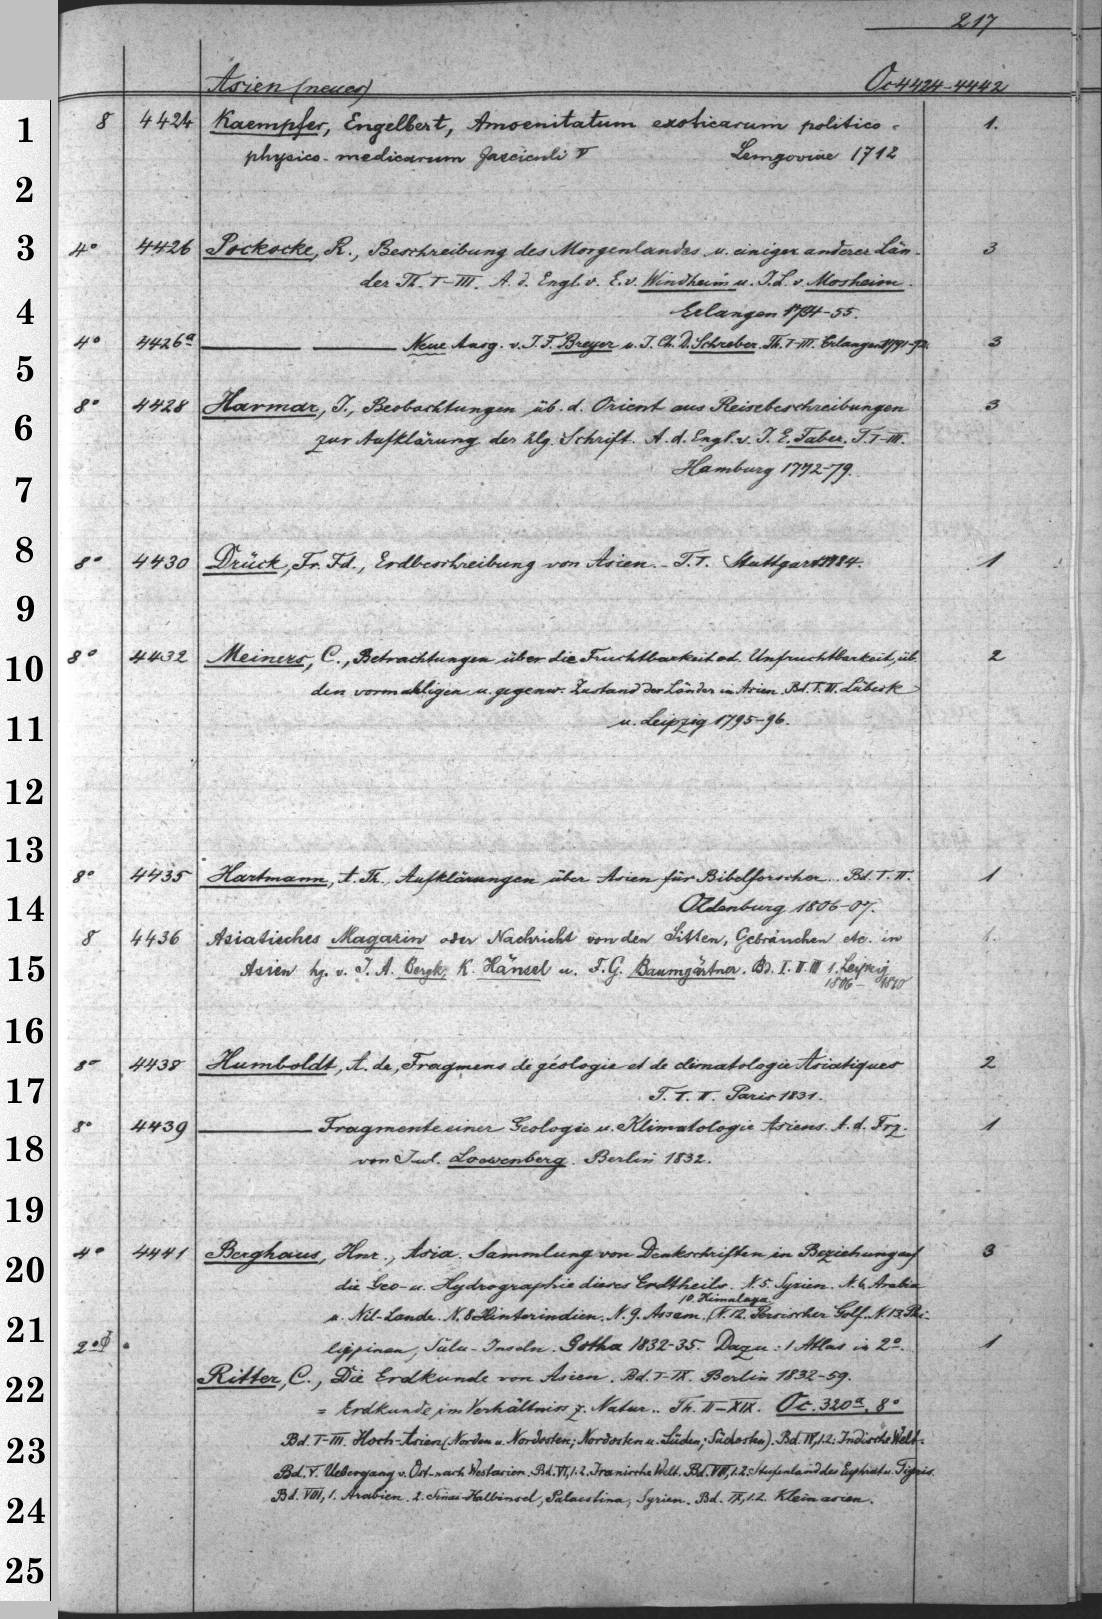 217
Asien (neues) Oc 4424-4442
1 8 4424 Kaempfer, Engelbert, Amoenitatum exoticarum politico- 1.
physico-medicarum fasciculi V Lemgoviae 1712
2
3 4° 4426 Pockocke, R., Beschreibung des Morgenlandes u. einiger anderer Län- 3
der Th. I-III. A. d. Engl. v. E. v. Windheim u. J. L. v. Mosheim.
4 Erlangen 1754-55.
4° 4426a ——— ——— Neue Ausg. v. J. F. Breyer u. J. Ch. D. Schreber. Th. I-III. Erlangen 1791-92. 3
5
6 8° 4428 Harmar, J., Beobachtungen üb. d. Orient aus Reisebeschreibungen 3
zur Aufklärung der hlg. Schrift. A. d. Engl. v. J. E. Faber. T. I-III.
7 Hamburg 1772-79.
8 8° 4430 Drück, Fr. Fd., Erdbeschreibung von Asien. T. I. Stuttgart 1784. 1
9
10 8° 4432 Meiners, C., Betrachtungen über die Fruchtbarkeit od. Unfruchtbarkeit, üb. 2
den vormahligen u. gegenw. Zustand der Länder in Asien. Bd. I. II. Lübeck
11 u. Leipzig 1795-96.
12
13
8° 4435 Hartmann, A. Th., Aufklärungen über Asien für Bibelforscher.. Bd. I. II. 1
14 Oldenburg 1806-07.
8 4436 Asiatisches Magazin oder Nachricht von den Sitten, Gebräuchen etc. in 1.
15 Asien hg. v. J. A. Bergk, K. Hänsel u. F. G. Baumgärtner. Bd. I. II. III 1. Leipzig
1806-1810
16
8° 4438 Humboldt, A. de, Fragmens de géologie et de climatologie Asiatiques 2
17 T. I. II. Paris 1831.
8° 4439 ——— Fragmente einer Geologie u. Klimatologie Asiens. A. d. Frz. 1
18 von Jul. Loewenberg. Berlin 1832.
19
4° 4441 Berghaus, Hnr., Asia. Sammlung von Denkschriften in Beziehung auf 3
20 die Geo- u. Hydrographie dieses Erdtheils. N. 5. Syrien. N. 6. Arabia
10. Himalaya
21 u. Nil-Lande. N. 8 Hinterindien. N. 9. Assam. (N. 12. Persischer Golf.. N. 13 Phi-
2° lippinen, Sulu-Inseln. Gotha 1832-35. Dazu: 1 Atlas in 2°. 1
22 Ritter, C., Die Erdkunde von Asien. Bd. I-IX. Berlin 1832-59.
= Erdkunde im Verhältniss z. Natur.. Th. II-XIX. Oc. 320a. 8°
23 Bd. I-III. Hoch-Asien (Norden u. Nordosten; Nordosten u. Süden; Südosten). Bd. IV, 1.2: Indische Welt.
Bd. V. Uebergang v. Ost- nach Westasien. Bd. VI, 1.2. Iranische Welt. Bd. VII, 1.2: Stufenland des Euphrat u. Tigris.
24 Bd. VIII, 1. Arabien. 2. Sinai-Halbinsel, Palaestina, Syrien. Bd. IX, 1.2. Kleinasien.
25